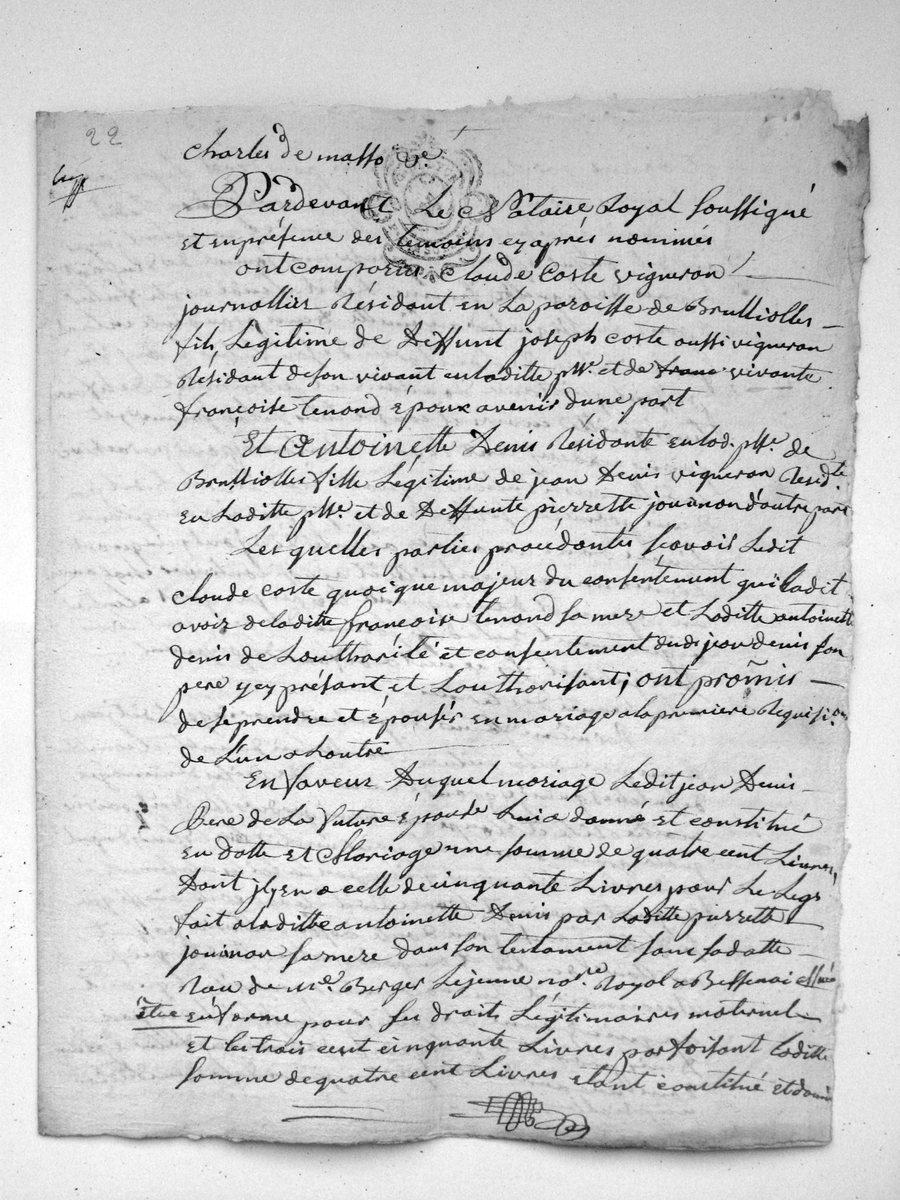 22
charles de masso
Pardevant Le Notaire Royal soussigné
et en présence des temoins cy après nommés
ont comparus claude coste vigneron
journallier Résidant en La paroisse de Brulliolles
fils Légitime de Deffunt joseph coste aussi vigneron
Résidant de son vivant en laditte psse. et de franc vivante
françoise tenand Epoux avenir dune part
Et Antoinette Denis Résidante en lad. psse. de
Brulliolles fille Légitime de jean Denis vigneron Residte.
en Laditte psse. et de Deffunte pierrette jouinon dautre part
Les quelles parties procédantes scavoir Ledit
claude coste quoique majeur du consentement quil adit
avoir de laditte françoise tenand sa mere et Laditte antoinette
denis de Louthorité et consentement dudi jean denis son
pere ycy présant et Louthorisant, ont promis
de se prendre et Epouser en mariage a la premiere Requision
de L'un a Lautre
En faveur Duquel mariage Ledit jean Denis
Pere de La future épouse Luia donné et constitué
en dotte et Mariage une somme de quatre cent Livres,
Dont jl y en a celle de cinquante Livres pour Le Legs
fait a laditte antoinette Denis par Laditte pierrette
jouinon sa mere dans son testament sous sa datte
Recu de Me. Berger Lejeune nore. Royal a Bessenai
être en forme pour ses droits Légitimaires maternels
et les trois cent cinquante Livres parfaisant laditte
somme de quatre cent Livres etant constitué et donné